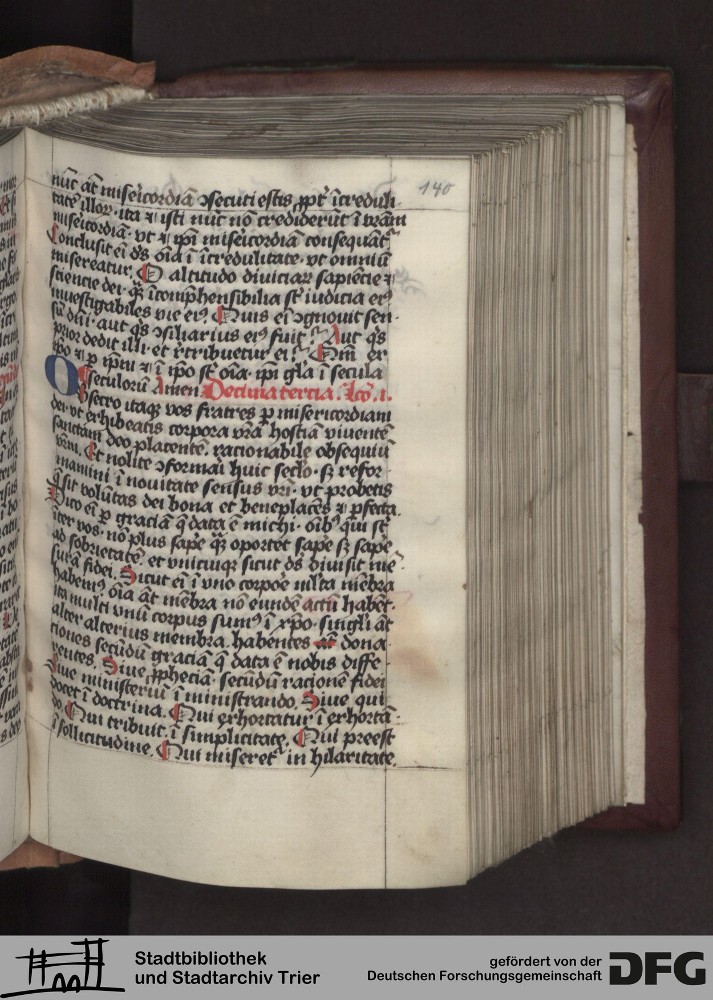 140
nūc āt mīsēicordiā ɔsecuti estis ꝓpt' īcreduli-
tatē illoꝝ. ita ⁊ isti nūc nō crediderūt ī vrām
misericordiā. vt ⁊ ip̄i misericordiā consequāt᷑
Conclusit ei d̄s oīa ī īcredulitate. vt omniū
misereatur. O altitudo diuiciaꝝ sapiēcie ⁊
sciencie dei. ꝙ īcomp̄hensibilia sūt iudicia eiꝰ
inuestigabiles vie eiꝰ. Quis ei ɔgnouit sen-
sū dn̄i. aut q̄s ɔsiliarius eiꝰ fuit. Aut q̄s
prior dedit illi. et r̄tribuetur ei. Qm̄ ex
ip̄o ⁊ ꝑ ip̄m ⁊ ī ip̄o sūt oīa. ip̄i gl̄a ī secula
seculorū Amen. Decima tercia. lc̄o. i.
Obsecro itaqꝫ vos fratres ꝑ misericordiam
dei. vt exhibeatis corpora vr̄a hostiā viuentē
sanctam deo placentē. racionabile obsequiū
vrm̄. Et nolite ɔformari huic sec̄lo. sꝫ refor-
mamini ī nouitate sensus vr̄i. vt probetis
q̄ sit volūtas dei bona et beneplacēs ⁊ ꝑfecta.
Dico ei ꝑ graciā q̄ data ē michi. oībꝰ qui sūt
īter vos. nō plus sape qꝫ oportet sape sꝫ sape
ad sobrietatē. et vnicuiqꝫ sicut d̄s diuisit mē-
surā fidei. Sicut ei ī vno corpoe ml̄ta mēbra
habemꝰ. oīa āt mēbra nō eundē actū habēt.
ita multi vnū corpus sumꝰ ī xp̄o. singli āt
alter alterius membra. habentes āt dona-
tiones secūdū graciā q̄ data ē nobis diffe-
rentes. Siue ꝓpheciā. secūdū racionē fidei
Siue ministeriū ī ministrando. Siue qui
docet ī doctrina. Qui exhortatur ī exhortā-
do. Qui tribuit. ī simplicitate. Qui preest
ī sollicitudine. Qui miseret᷑ in hilaritate.
Stadtbibliothek
und Stadtarchiv Trier
gefördert von der
Deutschen Forschungsgemeinschaft DFG